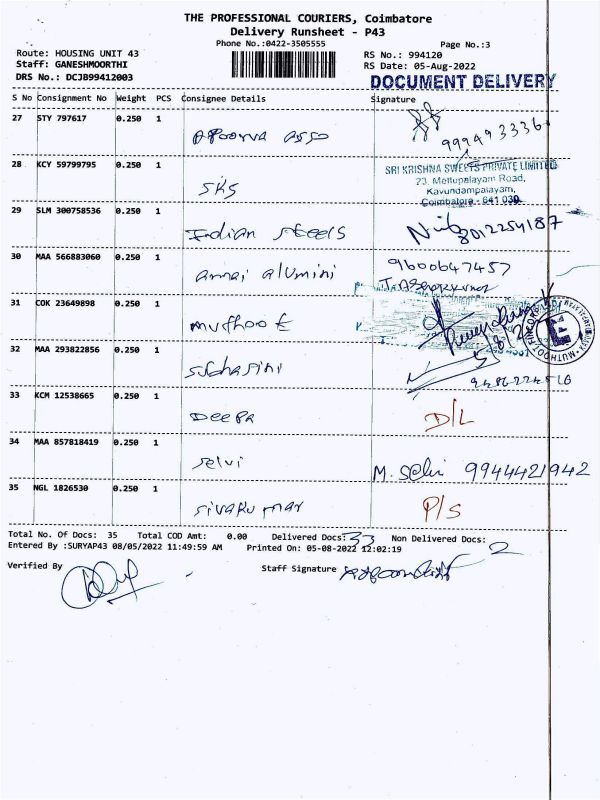 THE PROFESSIONAL COURIERS, Coimbatore
Delivery Runsheet - P43
Phone No.:0422-3505555
Page No.:3
Route: HOUSING UNIT 43
RS No.: 994120
Staff: GANESHMOORTHI
RS Date: 05-Aug-2022
DRS No.: DCJB99412003
DOCUMENT DELIVERY
S No Consignment No Weight PCS Consignee Details Signature
27 STY 797617 0.250 1
Apoorva Asso
28 KCY 59799795 0.250 1
SKS
SRI KRISHNA SWEETS PRIVATE LIMITED
23, Mettupalayam Road,
Kavundampalayam,
Coimbatore - 641 030
29 SLM 300758536 0.250 1
Indian steels
8012254187
30 MAA 566883060 0.250 1
annai alumini
9600647457
31 COK 23649898 0.250 1
muthoot
32 MAA 293822856 0.250 1
Subhasini
33 KCM 12538665 0.250 1
Deepa D/L
34 MAA 857818419 0.250 1
selvi M. Selvi 9944421942
35 NGL 1826530 0.250 1
sivakumar P/S
Total No. Of Docs: 35 Total COD Amt: 0.00 Delivered Docs: 33 Non Delivered Docs: 2
Entered By :SURYAP43 08/05/2022 11:49:59 AM Printed On: 05-08-2022 12:02:19
Verified By Staff Signature